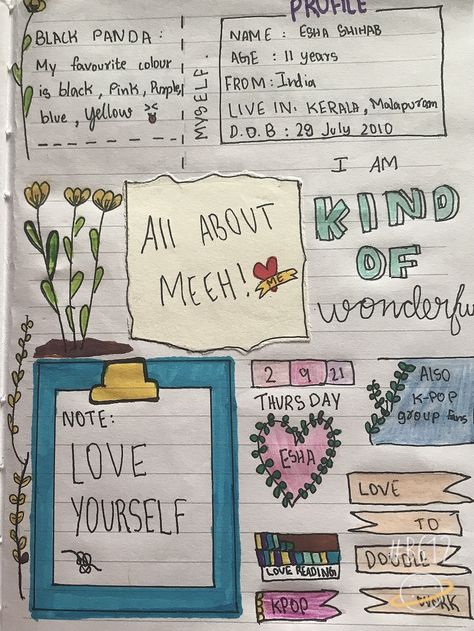 PROFILE
BLACK PANDA :
My favourite colour
is black, Pink, Purple,
blue, yellow
MYSELF.
NAME : ESHA SHIHAB
AGE : 11 years
FROM: India
LIVE IN: KERALA, Malapuram
D.O.B : 29 July 2010
I AM
KIND
OF
wonderfu
All ABOUT
MEEH!
ME
NOTE:
LOVE
YOURSELF
2 9 21
THURSDAY
ESHA
Also
K-POP
group fans
LOVE READING
KPOP
LOVE
TO
DOODLE
WORK